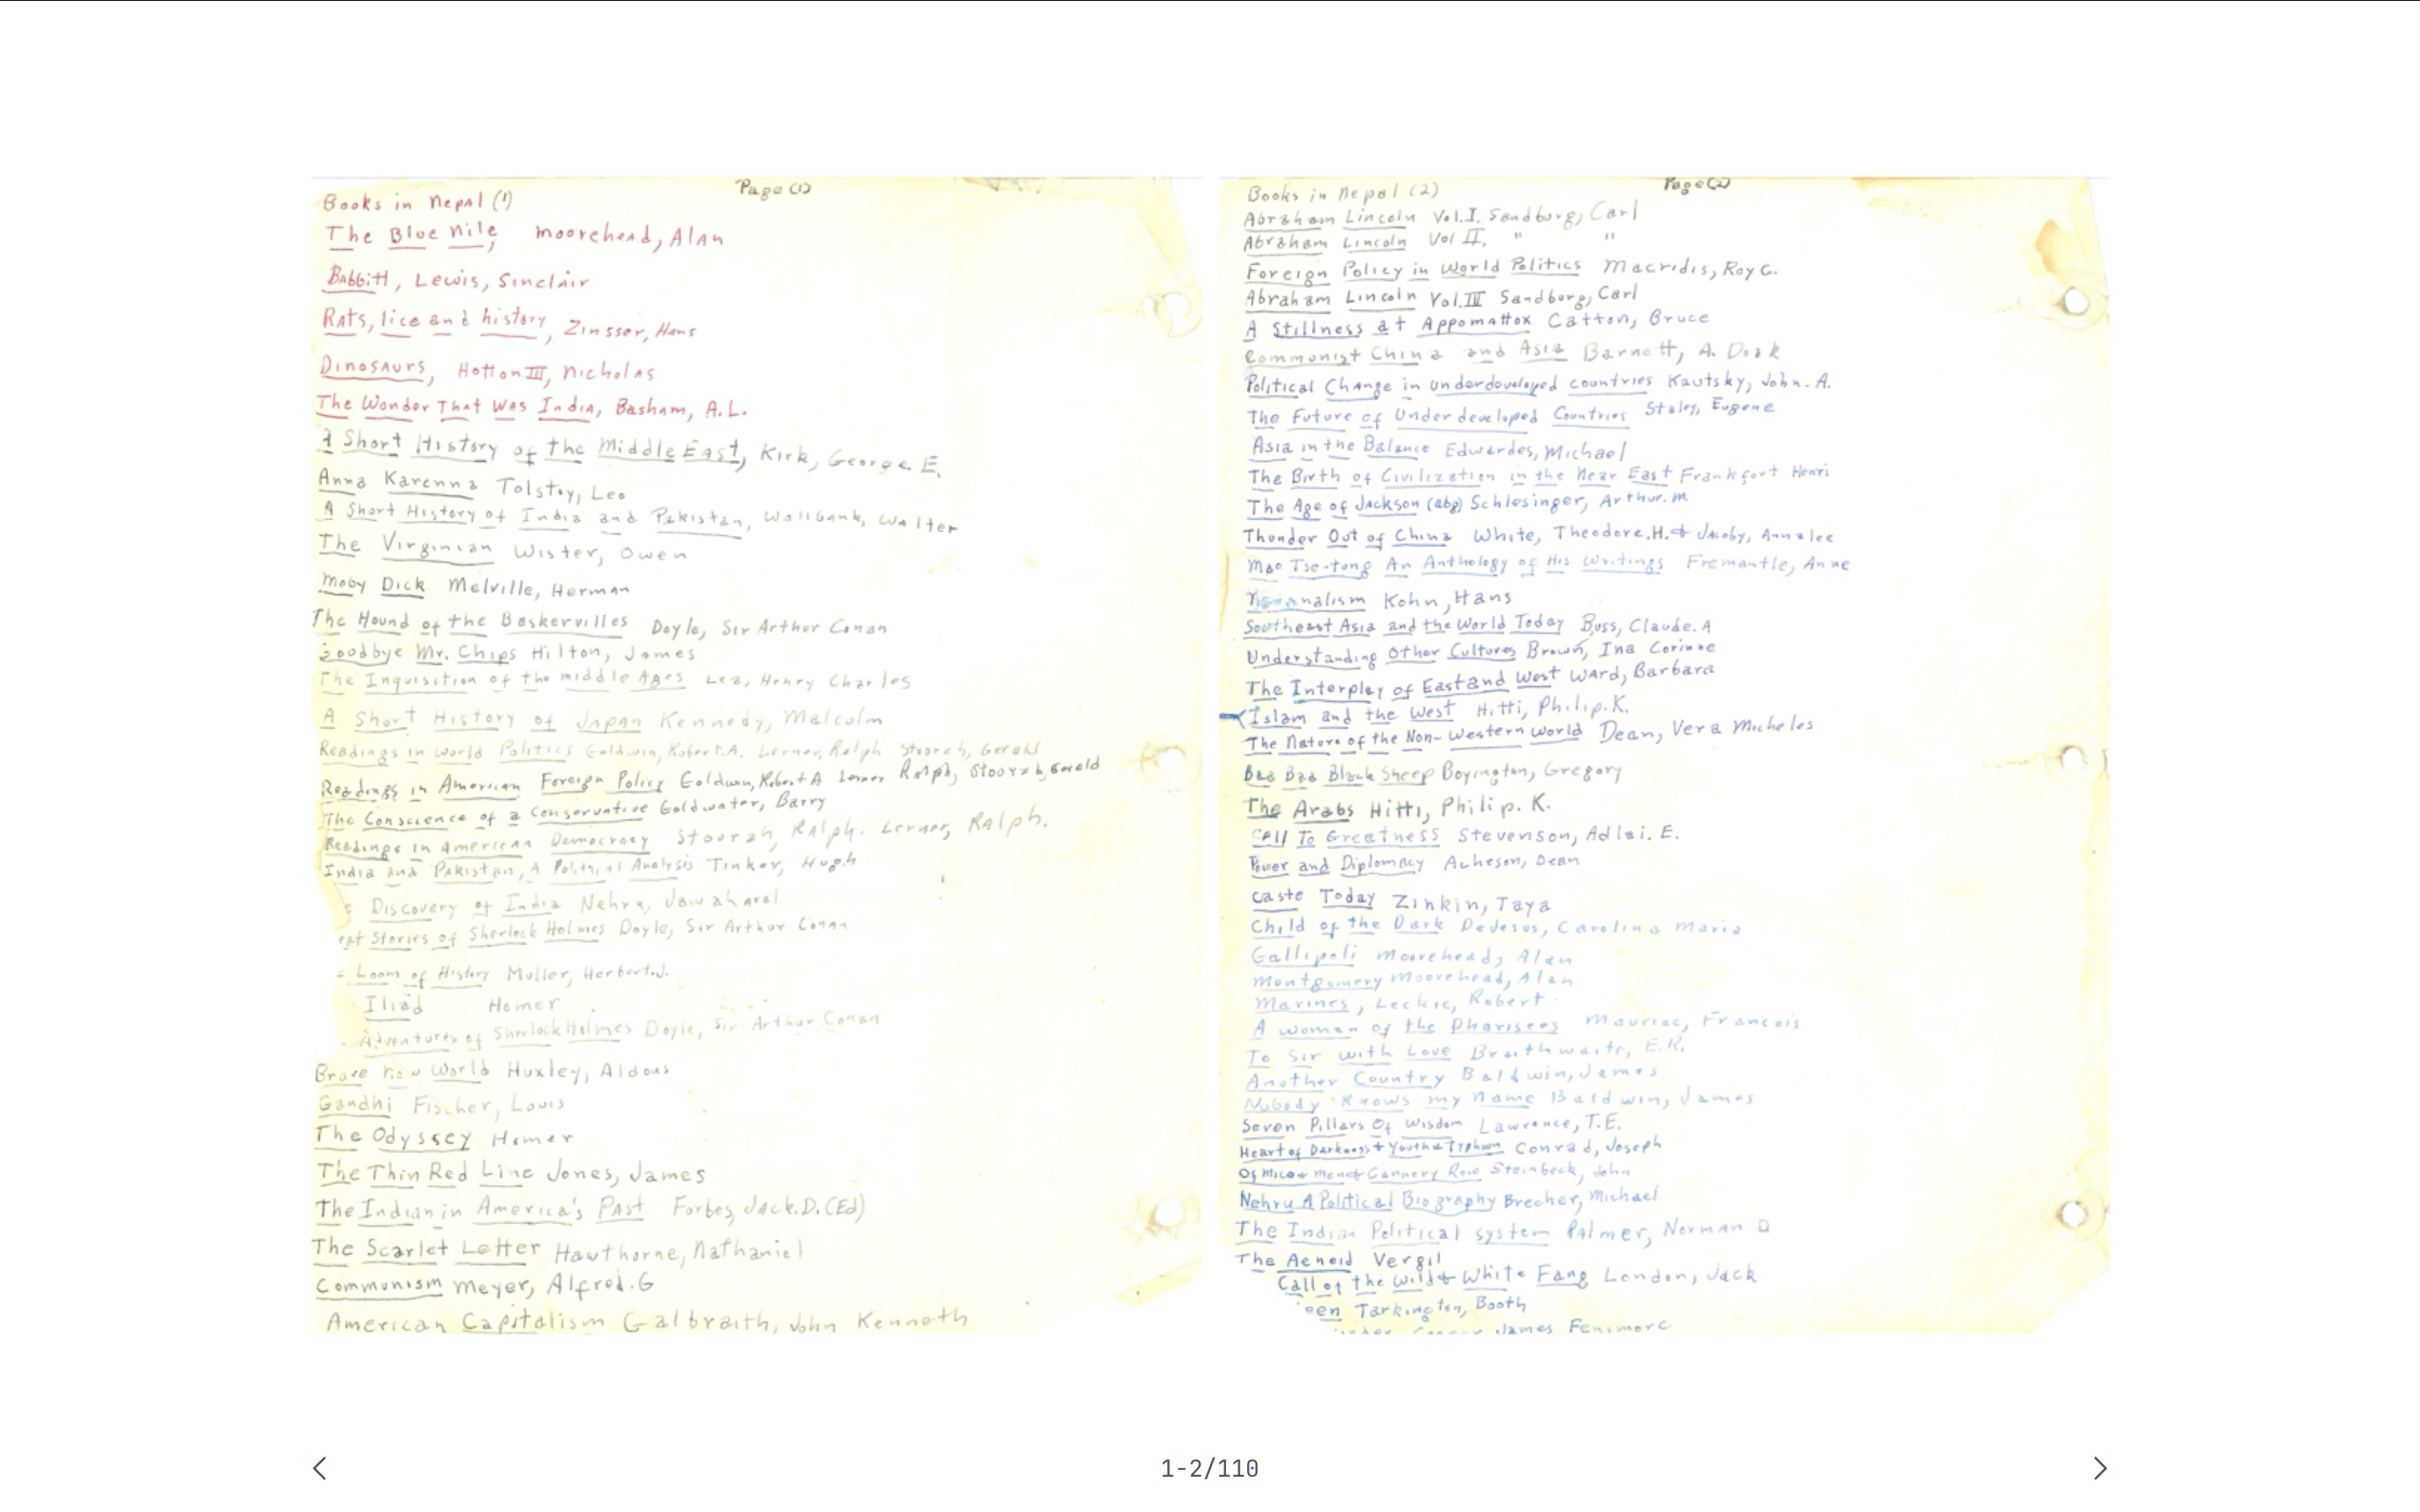 Page (1)
Books in Nepal (1)
The Blue Nile, Moorehead, Alan
Babbitt, Lewis, Sinclair
Rats, lice and history, Zinsser, Hans
Dinosaurs, Hotton III, Nicholas
The Wonder That Was India, Basham, A.L.
A Short History of the Middle East, Kirk, George E.
Anna Karenna Tolstoy, Leo
A Short History of India and Pakistan, Wallbank, Walter
The Virginian Wister, Owen
Moby Dick Melville, Herman
The Hound of the Baskervilles Doyle, Sir Arthur Conan
Goodbye Mr. Chips Hilton, James
The Inquisition of the middle Ages Lea, Henry Charles
A Short History of Japan Kennedy, Malcolm
Readings in World Politics Goldwin, Robert.A. Lerner, Ralph Stoorzh, Gerald
Readings in American Foreign Policy Goldwin, Robert A Lerner Ralph, Stoorzh, Gerald
The Conscience of a Conservative Goldwater, Barry
Readings in American Democracy Stourzh, Ralph. Lerner, Ralph.
India and Pakistan, A Political Analysis Tinker, Hugh
e Discovery of India Nehru, Jawaharal
eat Stories of Sherlock Holmes Doyle, Sir Arthur Conan
e Loom of History Muller, Herbert.J.
Iliad Homer
Adventures of Sherlock Holmes Doyle, Sir Arthur Conan
Brave New World Huxley, Aldous
Gandhi Fischer, Louis
The Odyssey Homer
The Thin Red Line Jones, James
The Indian in America's Past Forbes, Jack.D. (Ed)
The Scarlet Letter Hawthorne, Nathaniel
Communism Meyer, Alfred.G
American Capitalism Galbraith, John Kenneth
Page (2)
Books in Nepal (2)
Abraham Lincoln Vol.I. Sandburg, Carl
Abraham Lincoln Vol II, " "
Foreign Policy in World Politics Macridis, Roy C.
Abraham Lincoln Vol.III Sandburg, Carl
A Stillness at Appomattox Catton, Bruce
Communist China and Asia Barnett, A. Doak
Political Change in Underdeveloped countries Kautsky, John. A.
The Future of Underdeveloped Countries Staley, Eugene
Asia in the Balance Edwardes, Michael
The Birth of Civilization in the Near East Frankfort Henri
The Age of Jackson (abg) Schlesinger, Arthur.M
Thunder Out of China White, Theodore.H. & Jacoby, Annalee
Mao Tse-tung An Anthology of His Writings Fremantle, Anne
Nationalism Kohn, Hans
Southeast Asia and the World Today Buss, Claude. A
Understanding Other Cultures Brown, Ina Corinne
The Interplay of East and West Ward, Barbara
Islam and the West Hitti, Philip.K.
The Nature of the Non-Western World Dean, Vera Micheles
Baa Baa Black Sheep Boyington, Gregory
The Arabs Hitti, Philip. K.
Call To Greatness Stevenson, Adlai. E.
Power and Diplomacy Acheson, Dean
Caste Today Zinkin, Taya
Child of the Dark Dedesus, Carolina Maria
Gallipoli Moorehead, Alan
Montgomery Moorehead, Alan
Marines, Leckie, Robert
A Woman of the Pharisees Mauriac, Francois
To Sir With Love Braithwaite, E.R.
Another Country Baldwin, James
Nobody Knows My Name Baldwin, James
Seven Pillars Of Wisdom Lawrence, T.E.
Heart of Darkness + Youth & Typhoon Conrad, Joseph
Of Mice + Men & Cannery Row Steinbeck, John
Nehru A Political Biography Brecher, Michael
The Indian Political System Palmer, Norman D
The Aeneid Vergil
Call of the Wild & White Fang London, Jack
een Tarkington, Booth
James Fenimore
1-2/110